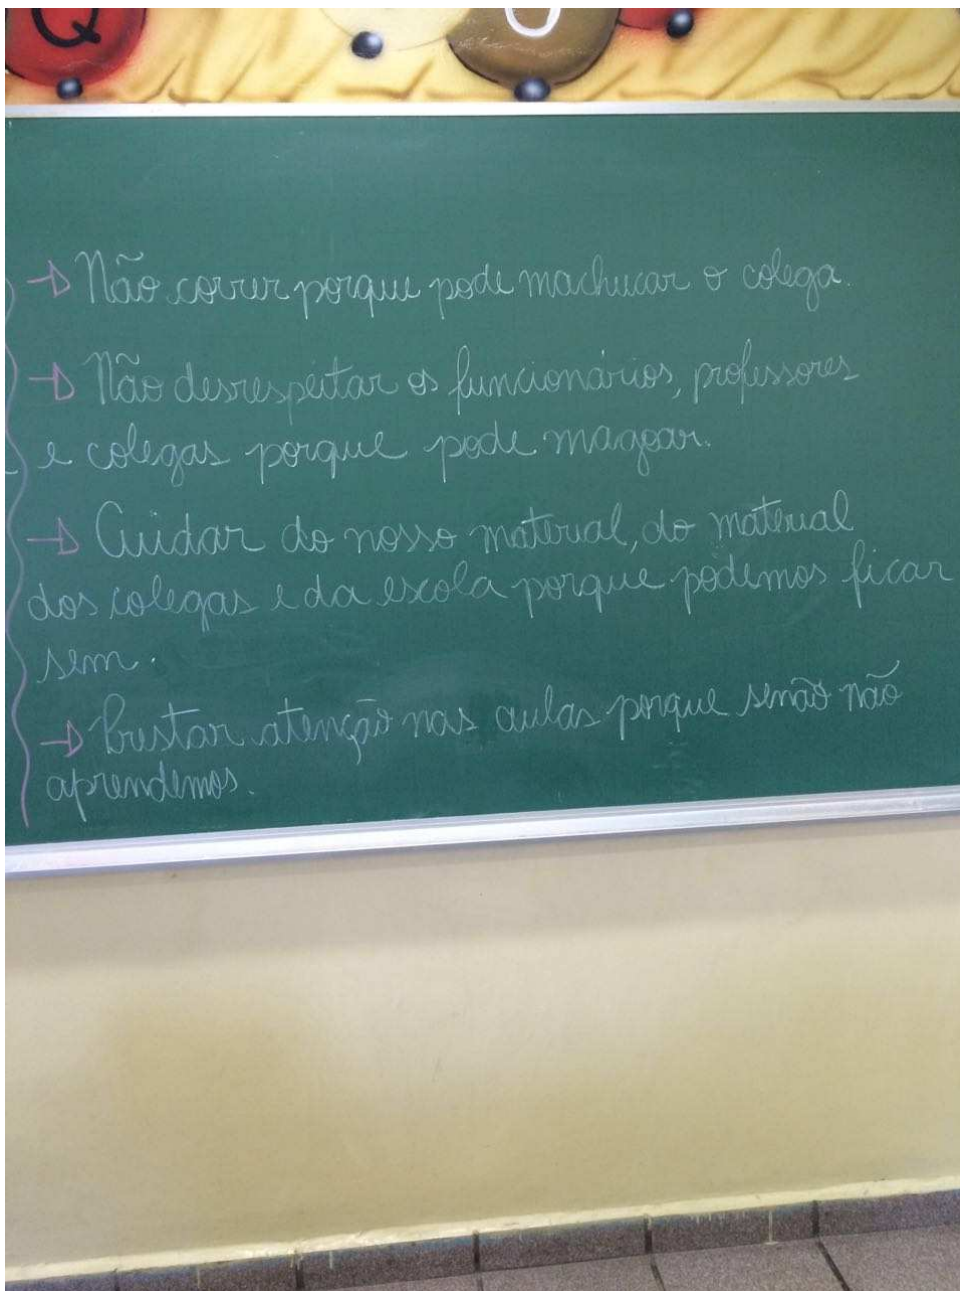 Q O
→ Não correr porque pode machucar o colega.
→ Não desrespeitar os funcionários, professores
e colegas porque pode magoar.
→ Cuidar do nosso material, do material
dos colegas e da escola porque podemos ficar
sem.
→ Prestar atenção nas aulas porque senão não
aprendemos.